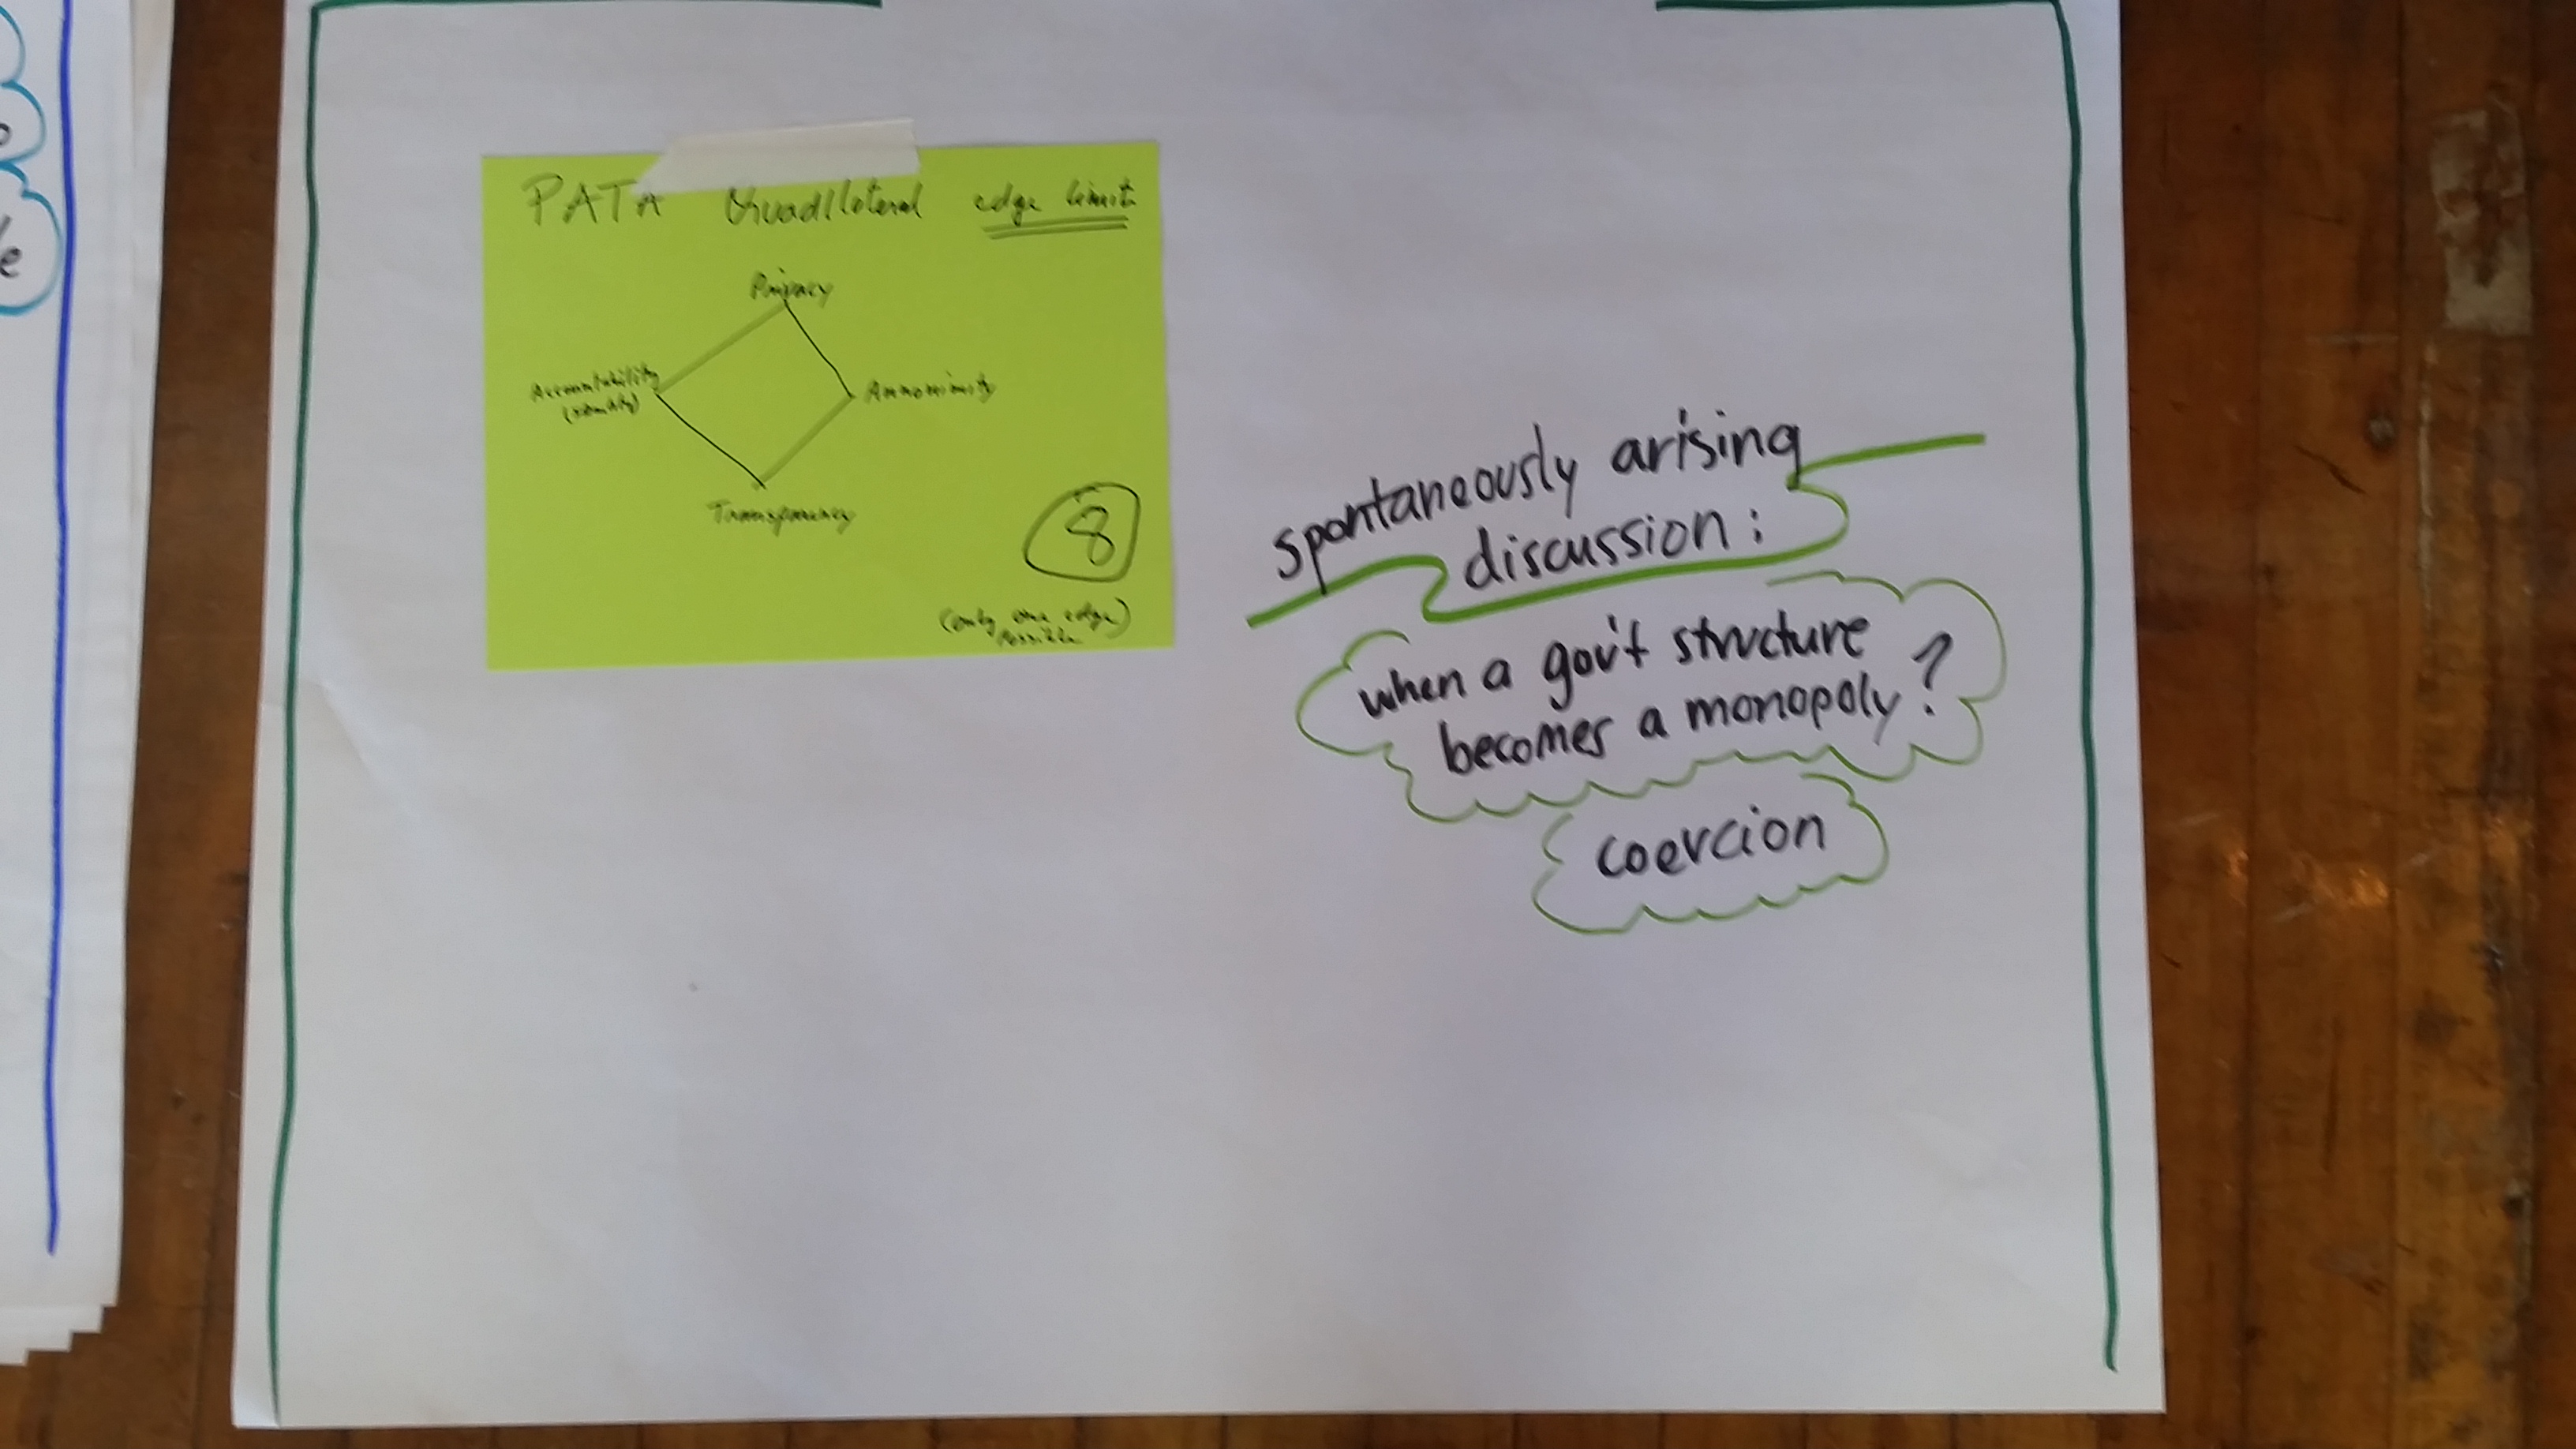 PATA Quadllateral edge limit
Privacy
Accountability
Annonimity
Transparency
8
(only one edge)
possible
spontaneously arising
discussion:
when a gov't structure
becomes a monopoly?
coercion